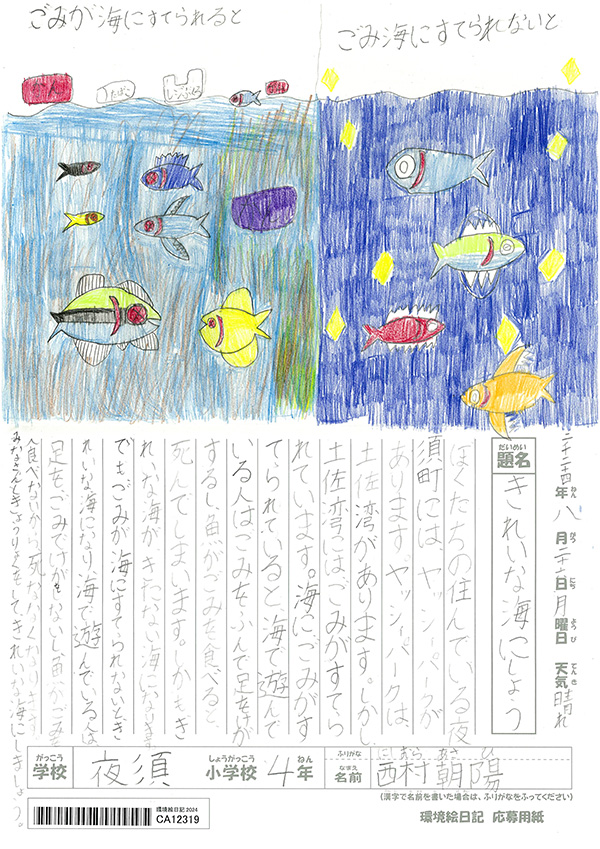 ごみが海にすてられると
ごみ海にすてられないと
たばこ
レジぶくろ
二千二十四年ねん 八月がつ 二十六日にち 月曜日ようび 天気てんき 晴れ
題名だいめい きれいな海にしょう
ぼくたちの住んでいる夜
須町には、ヤッシィパークが
あります。ヤッシィパークは、
土佐湾があります。しかし
土佐湾にはごみがすてら
れています。海にごみがす
てられていると、海で遊んで
いる人はごみをふんで足をけが
するし、魚がごみを食べると、
死んでしまいます。しかもき
れいな海が、きたない海になります。
でもごみが海にすてられないとき
れいな海になり海で遊んでいる人は
足をごみでけがをしないし、魚がごみを
食べないから、死ななくなります。
みなさんもきょうりょくをして、きれいな海にしましょう。
がっこう しょうがっこう ねん ふりがな にしむら あさひ
学校 夜須 小学校 4年 なまえ 名前 西村 朝陽
(漢字で名前を書いた場合は、ふりがなをふってください)
環境絵日記 2024
CA12319
環境絵日記 応募用紙